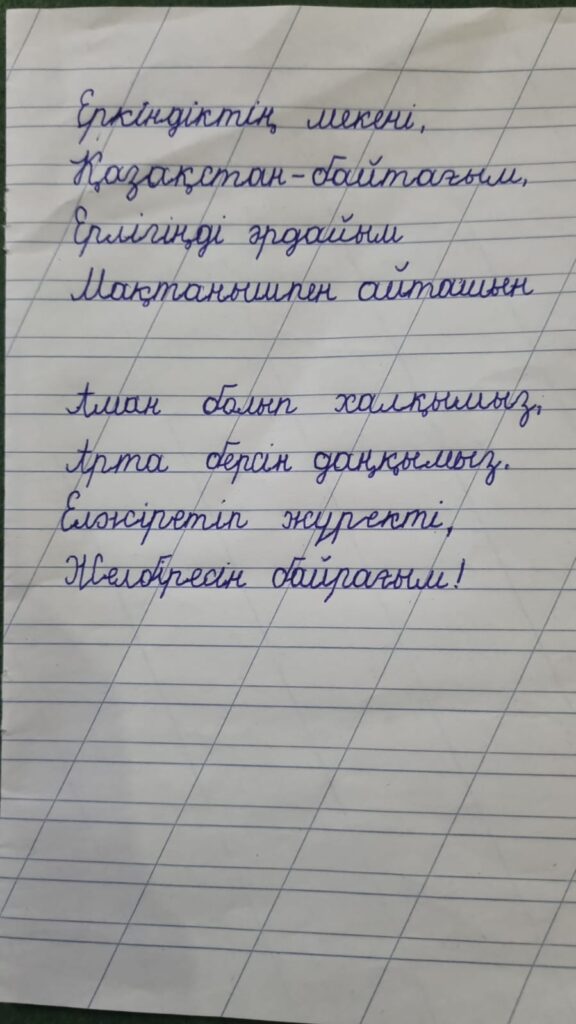 Еркіндіктің мекені,
Қазақстан-байтағым,
Ерлігіңді әрдайым
Мақтанышпен айташын

Аман болып халқымыз,
Арта берсін даңқымыз.
Елжіретіп жүректі,
Желбіресін байрағым!